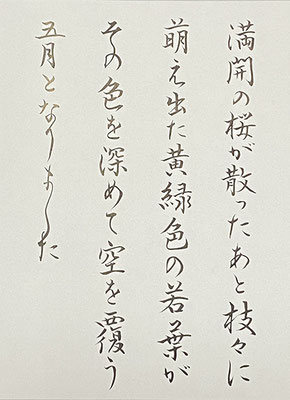 満開の桜が散ったあと枝々に
萌え出た黄緑色の若葉が
その色を深めて空を覆う
五月となりました